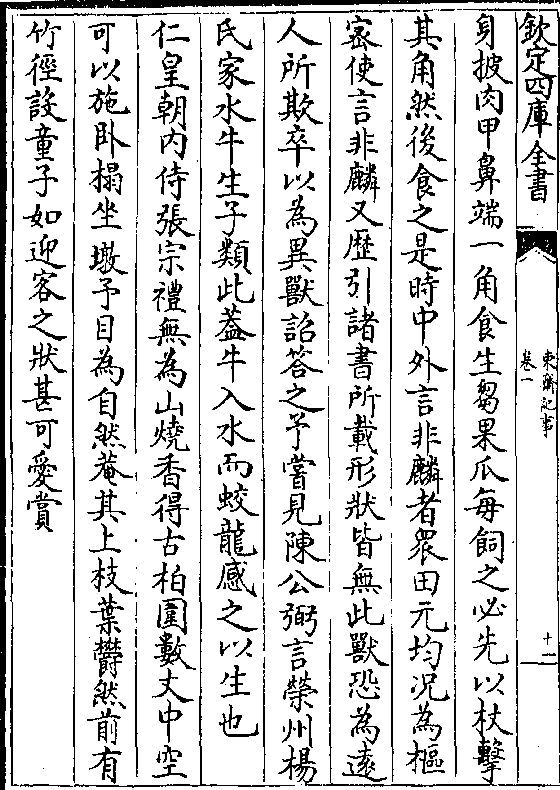 欽定四庫全書
東齋記事
卷一
十一
身披肉甲鼻端一角食生芻果瓜每飼之必先以杖擊
其角然後食之是時中外言非麟者衆田元均况為樞
宻使言非麟又歴引諸書所載形狀皆無此獸恐為逺
人所欺卒以為異獸詔答之予嘗見陳公弼言榮州楊
氏家水牛生子類此蓋牛入水而蛟龍感之以生也
仁皇朝内侍張宗禮無為山燒香得古柏圍數丈中空
可以施卧榻坐墩予目為自然菴其上枝葉欝然前有
竹徑設童子如迎客之狀甚可愛賞